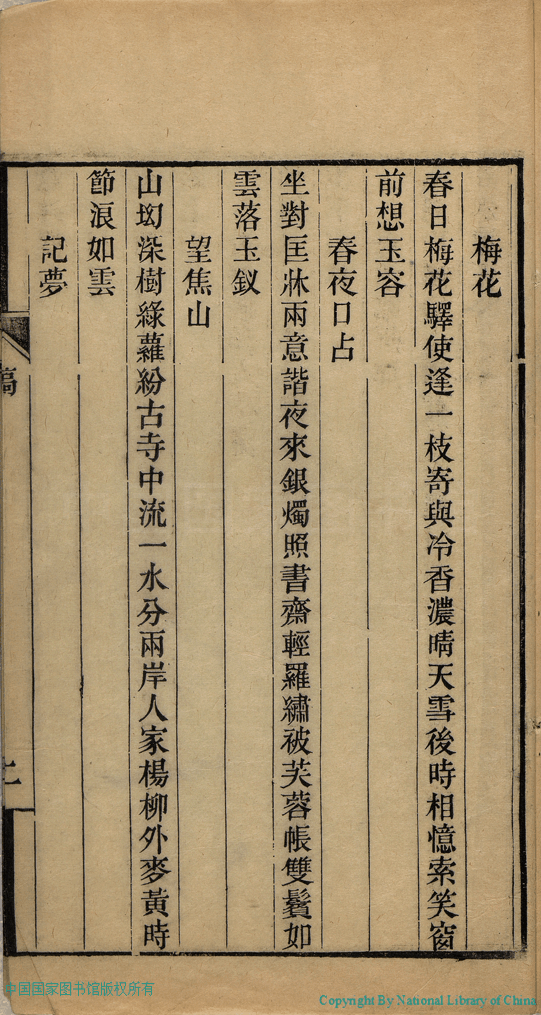 梅花
春日梅花驛使逢一枝寄與冷香濃晴天雪後時相憶索笑窗
前想玉容
春夜口占
坐對匡牀兩意諧夜來銀燭照書齋輕羅繡被芙蓉帳雙鬟如
雲落玉釵
望焦山
山坳深樹綠蘿紛古寺中流一水分兩岸人家楊柳外麥黃時
節浪如雲
記夢
稿
中国国家图书馆版权所有
Copyright By National Library of China